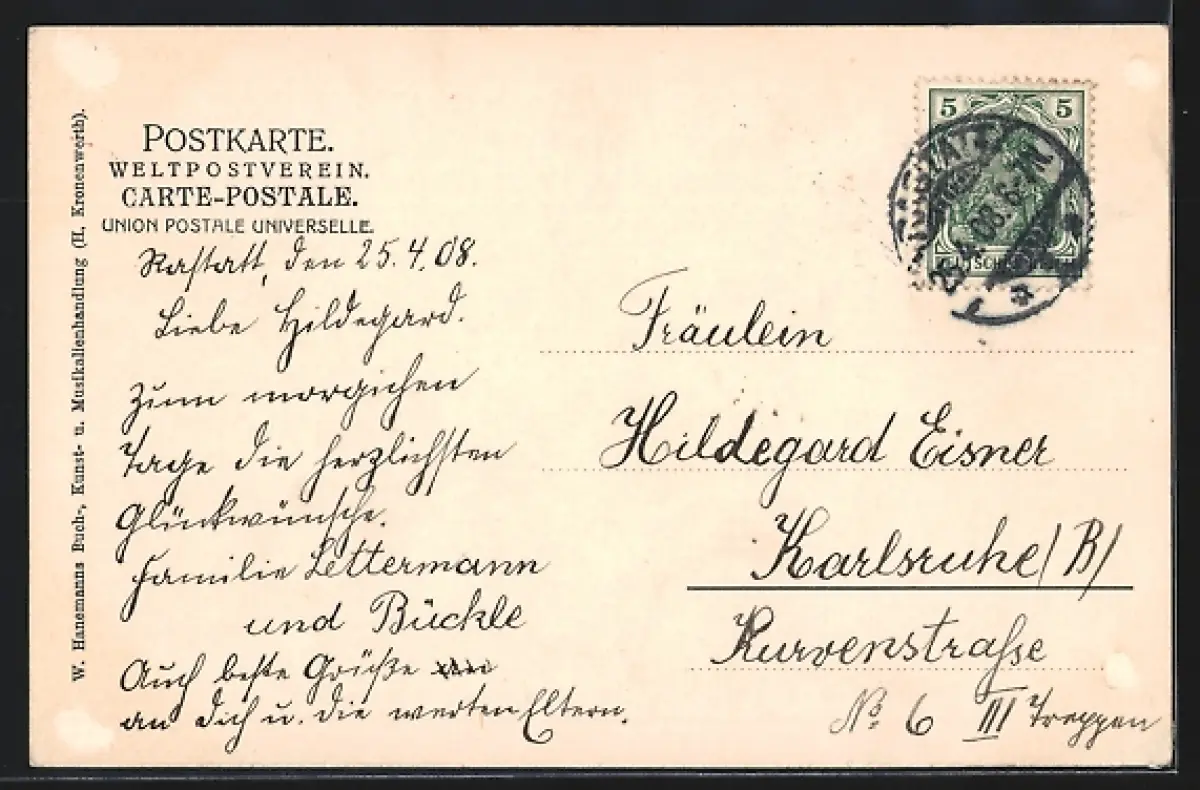 W. Hanemanns Buch-, Kunst- u. Musikalienhandlung (H. Kronenwerth).
POSTKARTE.
WELTPOSTVEREIN.
CARTE-POSTALE.
UNION POSTALE UNIVERSELLE.
Rastatt, den 25.4.08.
Liebe Hildegard.
Zum morgichen
Tage die herzlichsten
Glückwünsche.
Familie Lettermann
und Bückle
Auch beste Grüße
an Dich u. die werten Eltern.
5 5
RASTATT
25.4.08.6-7N
Fräulein
Hildegard Eisner
Karlsruhe /B/
Kurvenstraße
No 6 III Treppen